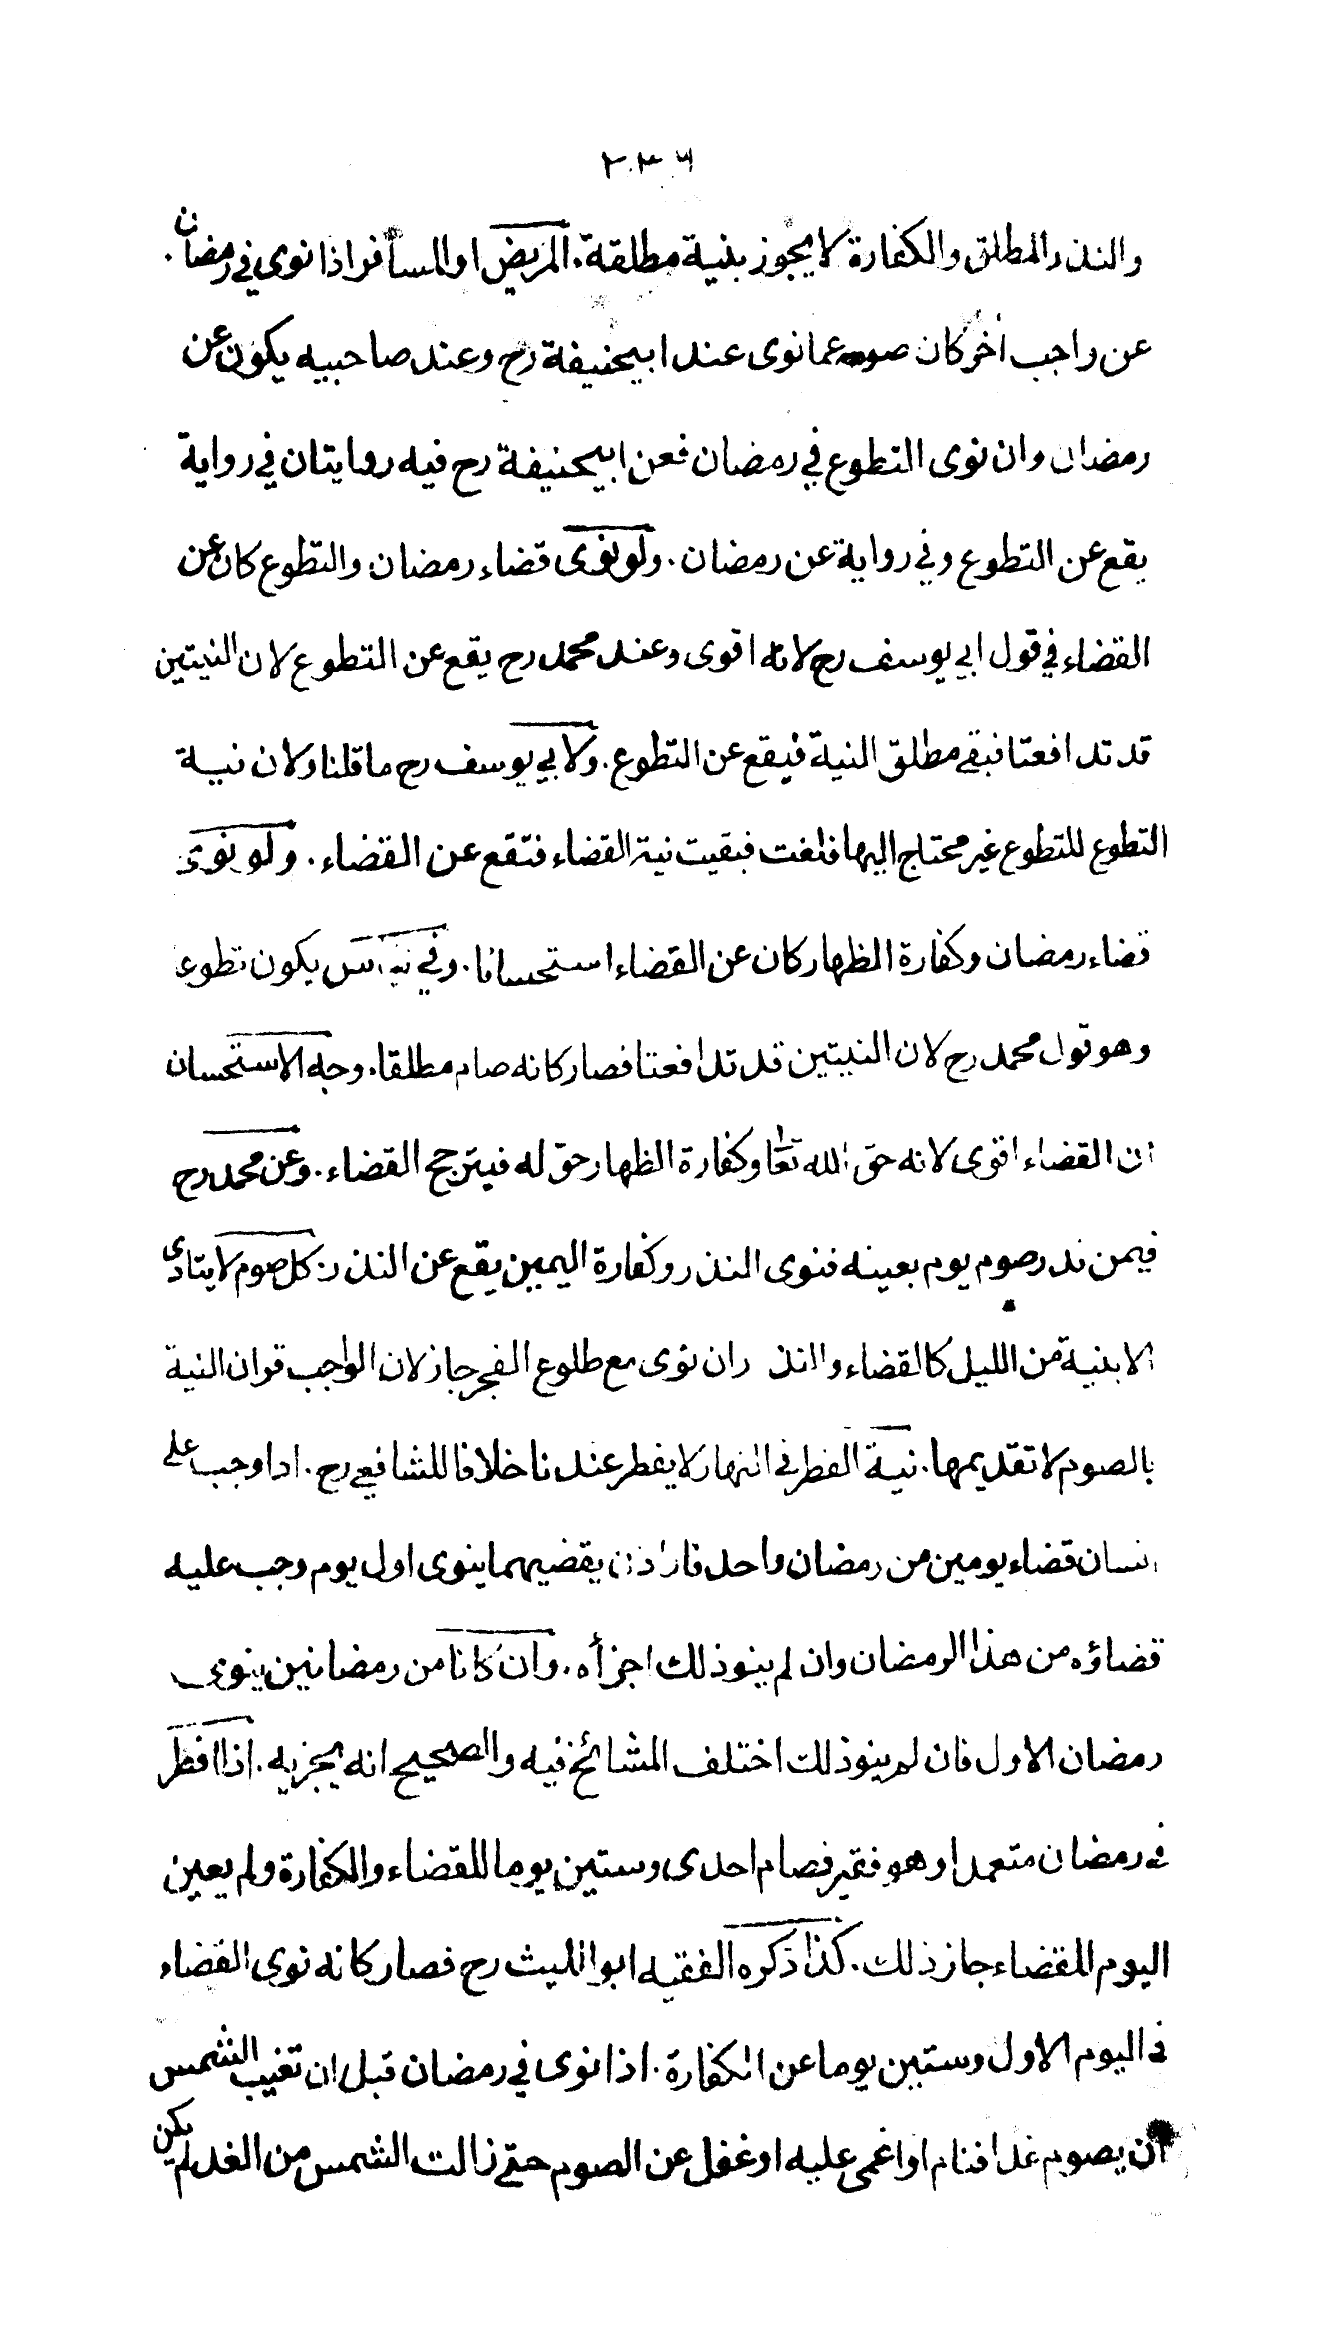 ٢٣٦
والنذر المطلق والكفارة لا يجوز بنية مطلقة. المريض او المسافر اذا نوى في رمضان.
عن واجب آخر كان صومه عما نوى عند ابيحنيفة رح وعند صاحبيه يكون عن
رمضان وان نوى التطوع في رمضان فعن ابيحنيفة رح فيه روايتان في رواية
يقع عن التطوع وفي رواية عن رمضان. ولو نوى قضاء رمضان والتطوع كان عن
القضاء في قول ابي يوسف رح لانه اقوى وعند محمد رح يقع عن التطوع لان النيتين
قد تدافعتا فبقي مطلق النية فيقع عن التطوع. ولابي يوسف رح ما قلنا ولان نية
التطوع للتطوع غير محتاج اليها فلغت فبقيت نية القضاء فتقع عن القضاء. ولو نوى
قضاء رمضان وكفارة الظهار كان عن القضاء استحسانا. وفي القياس يكون تطوعا
وهو قول محمد رح لان النيتين قد تدافعتا فصار كانه صام مطلقا. وجه الاستحسان
ان القضاء اقوى لانه حق الله تعا وكفارة الظهار حق له فيترجح القضاء. وعن محمد رح
فيمن نذر صوم يوم بعينه فنوى النذر وكفارة اليمين يقع عن النذر. كل صوم لا يتادى
الا بنية من الليل كالقضاء والنذر ان نوى مع طلوع الفجر جاز لان الواجب قران النية
بالصوم لا تقديمها. نية الفطر في النهار لا يفطر عندنا خلافا للشافعي رح. اذا وجب على
انسان قضاء يومين من رمضان واحد فاراد ان يقضيهما ينوى اول يوم وجب عليه
قضاؤه من هذا الرمضان وان لم ينو ذلك اجزأه. وان كانا من رمضانين ينوى
رمضان الاول فان لم ينو ذلك اختلف المشائخ فيه والصحيح انه يجزيه. اذا افطر
في رمضان متعمدا وهو فقير فصام احدى وستين يوما للقضاء والكفارة ولم يعين
اليوم للقضاء جاز ذلك. كذا ذكره الفقيه ابو الليث رح فصار كانه نوى القضاء
في اليوم الاول وستين يوما عن الكفارة. اذا نوى في رمضان قبل ان تغيب الشمس
ان يصوم غدا فنام او اغمي عليه او غفل عن الصوم حتى زالت الشمس من الغد لم يكن